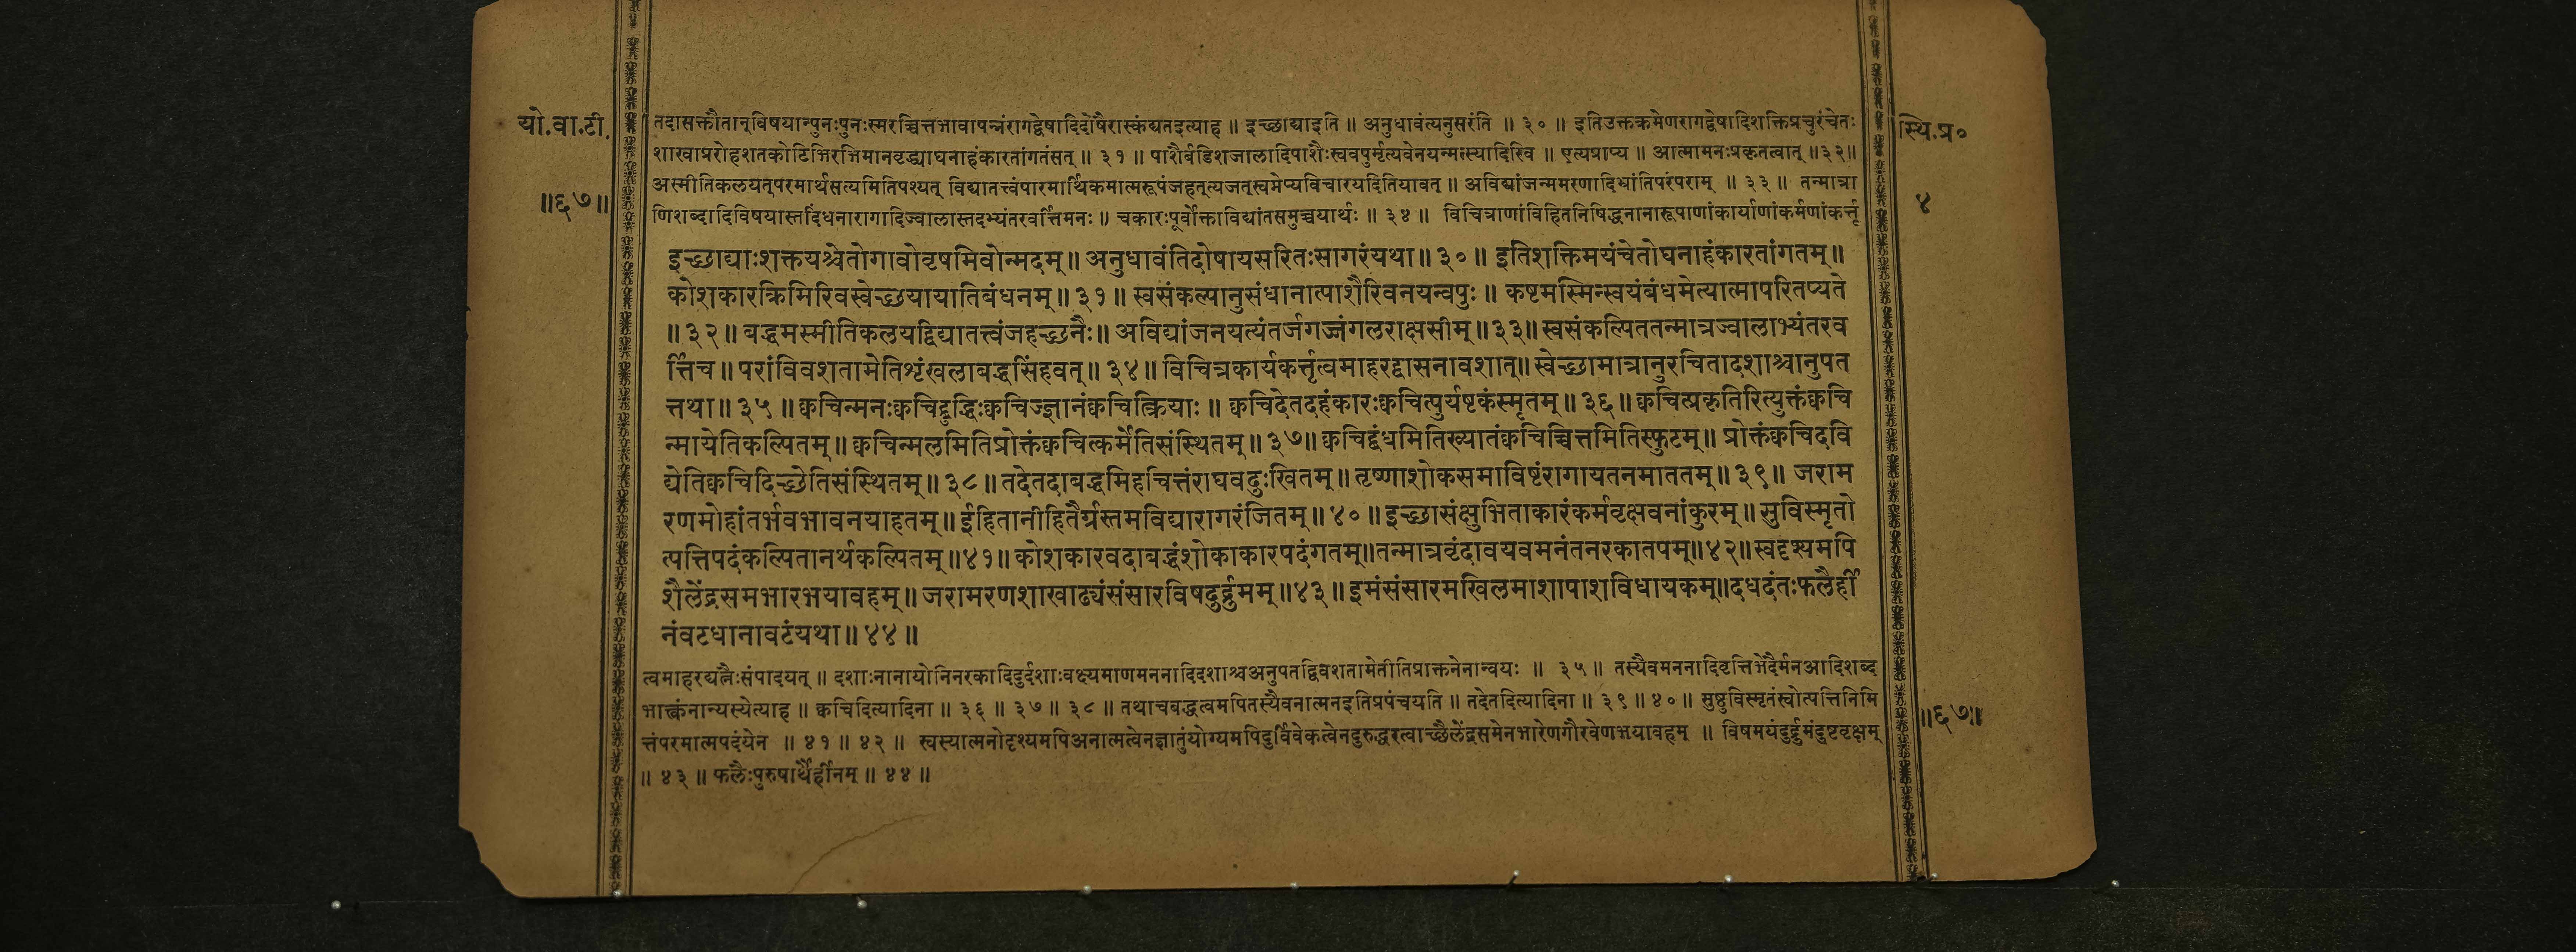 यो.वा.टी.
॥६७॥
तदासक्तौतान्विषयान्पुनःपुनःस्मरच्चित्तभावापन्नंरागद्वेषादिदोषैरास्कंद्यतइत्याह ॥ इच्छाद्याइति ॥ अनुधावंत्यनुसरंति ॥ ३० ॥ इतिउक्तक्रमेणरागद्वेषादिशक्तिप्रचुरंचेतः
शाखाप्ररोहशतकोटिभिरभिमानवृद्ध्याघनाहंकारतांगतंसत् ॥ ३१ ॥ पाशैर्बडिशजालादिपाशैःस्ववपुर्मृत्यवेनयन्मत्स्यादिरिव ॥ एत्यप्राप्य ॥ आत्मामनःप्रकृतत्वात् ॥३२॥
अस्मीतिकलयत्परमार्थसत्यमितिपश्यत् विद्यातत्त्वंपारमार्थिकमात्मरूपंजहत्त्यजत्स्वप्नेप्यविचारयदितियावत् ॥ अविद्यांजन्ममरणादिभ्रांतिपरंपराम् ॥ ३३ ॥ तन्मात्रा
णिशब्दादिविषयास्तदिंधनारागादिज्वालास्तदभ्यंतरवर्त्तिमनः ॥ चकारःपूर्वोक्ताविद्यांतसमुच्चयार्थः ॥ ३४ ॥ विचित्राणांविहितनिषिद्धनानारूपाणांकार्याणांकर्मणांकर्त्तृ
इच्छाद्याःशक्तयश्चेतोगावोवृषमिवोन्मदम् ॥ अनुधावंतिदोषायसरितःसागरंयथा ॥ ३० ॥ इतिशक्तिमयंचेतोघनाहंकारतांगतम् ॥
कोशकारक्रिमिरिवस्वेच्छयायातिबंधनम् ॥ ३१ ॥ स्वसंकल्पानुसंधानात्पाशैरिवनयन्वपुः ॥ कष्टमस्मिन्स्वयंबंधमेत्यात्मापरितप्यते
॥ ३२ ॥ बद्धमस्मीतिकलयद्विद्यातत्त्वंजहच्छनैः ॥ अविद्यांजनयत्यंतर्जगज्जंगलराक्षसीम् ॥ ३३ ॥ स्वसंकल्पिततन्मात्रज्वालाभ्यंतरव
र्त्तिच ॥ परांविवशतामेतिशृंखलाबद्धसिंहवत् ॥ ३४ ॥ विचित्रकार्यकर्त्तृत्वमाहरद्वासनावशात् ॥ स्वेच्छामात्रानुरचितादशाश्चानुपत
त्तथा ॥ ३५ ॥ क्वचिन्मनःक्वचिद्बुद्धिःक्वचिज्ज्ञानंक्वचित्क्रियाः ॥ क्वचिदेतदहंकारःक्वचित्पुर्यष्टकंस्मृतम् ॥ ३६ ॥ क्वचित्प्रकृतिरित्युक्तंक्वचि
न्मायेतिकल्पितम् ॥ क्वचिन्मलमितिप्रोक्तंक्वचित्कर्मेतिसंस्थितम् ॥ ३७ ॥ क्वचिद्बंधमितिख्यातंक्वचिच्चित्तमितिस्फुटम् ॥ प्रोक्तंक्वचिदवि
द्येतिक्वचिदिच्छेतिसंस्थितम् ॥ ३८ ॥ तदेतदाबद्धमिहचित्तंराघवदुःखितम् ॥ तृष्णाशोकसमाविष्टंरागायतनमाततम् ॥ ३९ ॥ जराम
रणमोहांतर्भवभावनयाहतम् ॥ ईहितानीहितैर्ग्रस्तमविद्यारागरंजितम् ॥ ४० ॥ इच्छासंक्षुभिताकारंकर्मवृक्षवनांकुरम् ॥ सुविस्मृतो
त्पत्तिपदंकल्पितानर्थकल्पितम् ॥ ४१ ॥ कोशकारवदाबद्धंशोकाकारपदंगतम् ॥ तन्मात्रवृंदावयवमनंतनरकातपम् ॥ ४२ ॥ स्वदृश्यमपि
शैलेंद्रसमभारभयावहम् ॥ जरामरणशाखाढ्यंसंसारविषदुर्द्रुमम् ॥ ४३ ॥ इमंसंसारमखिलमाशापाशविधायकम् ॥ दधदंतःफलैर्ही
नंवटधानावटंयथा ॥ ४४ ॥
त्वमाहरद्यत्नैःसंपादयत् ॥ दशाःनानायोनिनरकादिदुर्दशाःवक्ष्यमाणमननादिदशाश्चअनुपतद्विवशतामेतीतिप्राक्तनेनान्वयः ॥ ३५ ॥ तस्यैवमननादिवृत्तिभेदैर्मनआदिशब्द
भाक्त्वंनान्यस्येत्याह ॥ क्वचिदित्यादिना ॥ ३६ ॥ ३७ ॥ ३८ ॥ तथाचबद्धत्वमपितस्यैवनात्मनइतिप्रपंचयति ॥ तदेतदित्यादिना ॥ ३९ ॥ ४० ॥ सुष्ठुविस्मृतंस्वोत्पत्तिनिमि
त्तंपरमात्मपदंयेन ॥ ४१ ॥ ४२ ॥ स्वस्यात्मनोदृश्यमपिअनात्मत्वेनज्ञातुंयोग्यमपिदुर्विवेकत्वेनदुरुद्धरत्वाच्छैलेंद्रसमेनभारेणगौरवेणभयावहम् ॥ विषमयंदुर्द्रुमंदुष्टवृक्षम्
॥ ४३ ॥ फलैःपुरुषार्थैर्हीनम् ॥ ४४ ॥
स्थि.प्र०
४
॥६७॥